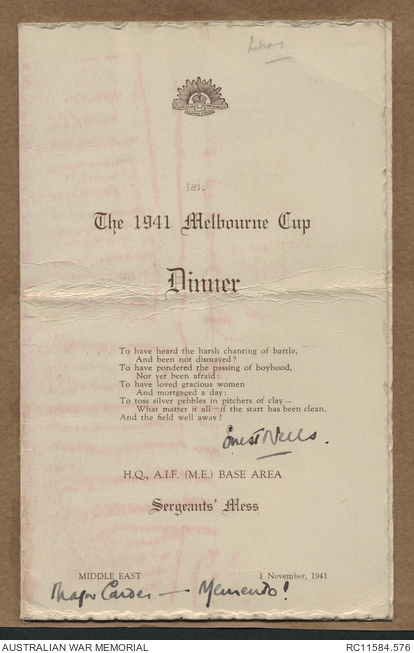 Library
The 1941 Melbourne Cup
Dinner
To have heard the harsh chanting of battle,
And been not dismayed?
To have pondered the passing of boyhood,
Nor yet been afraid:
To have loved gracious women
And mortgaged a day:
To toss silver pebbles in pitchers of clay—
What matter it all—if the start has been clean,
And the field well away?
Ernest Wells.
H.Q., A.I.F. (M.E.) BASE AREA
Sergeants' Mess
MIDDLE EAST
1 November, 1941
Major Carder — Memento!
AUSTRALIAN WAR MEMORIAL
RC11584.576